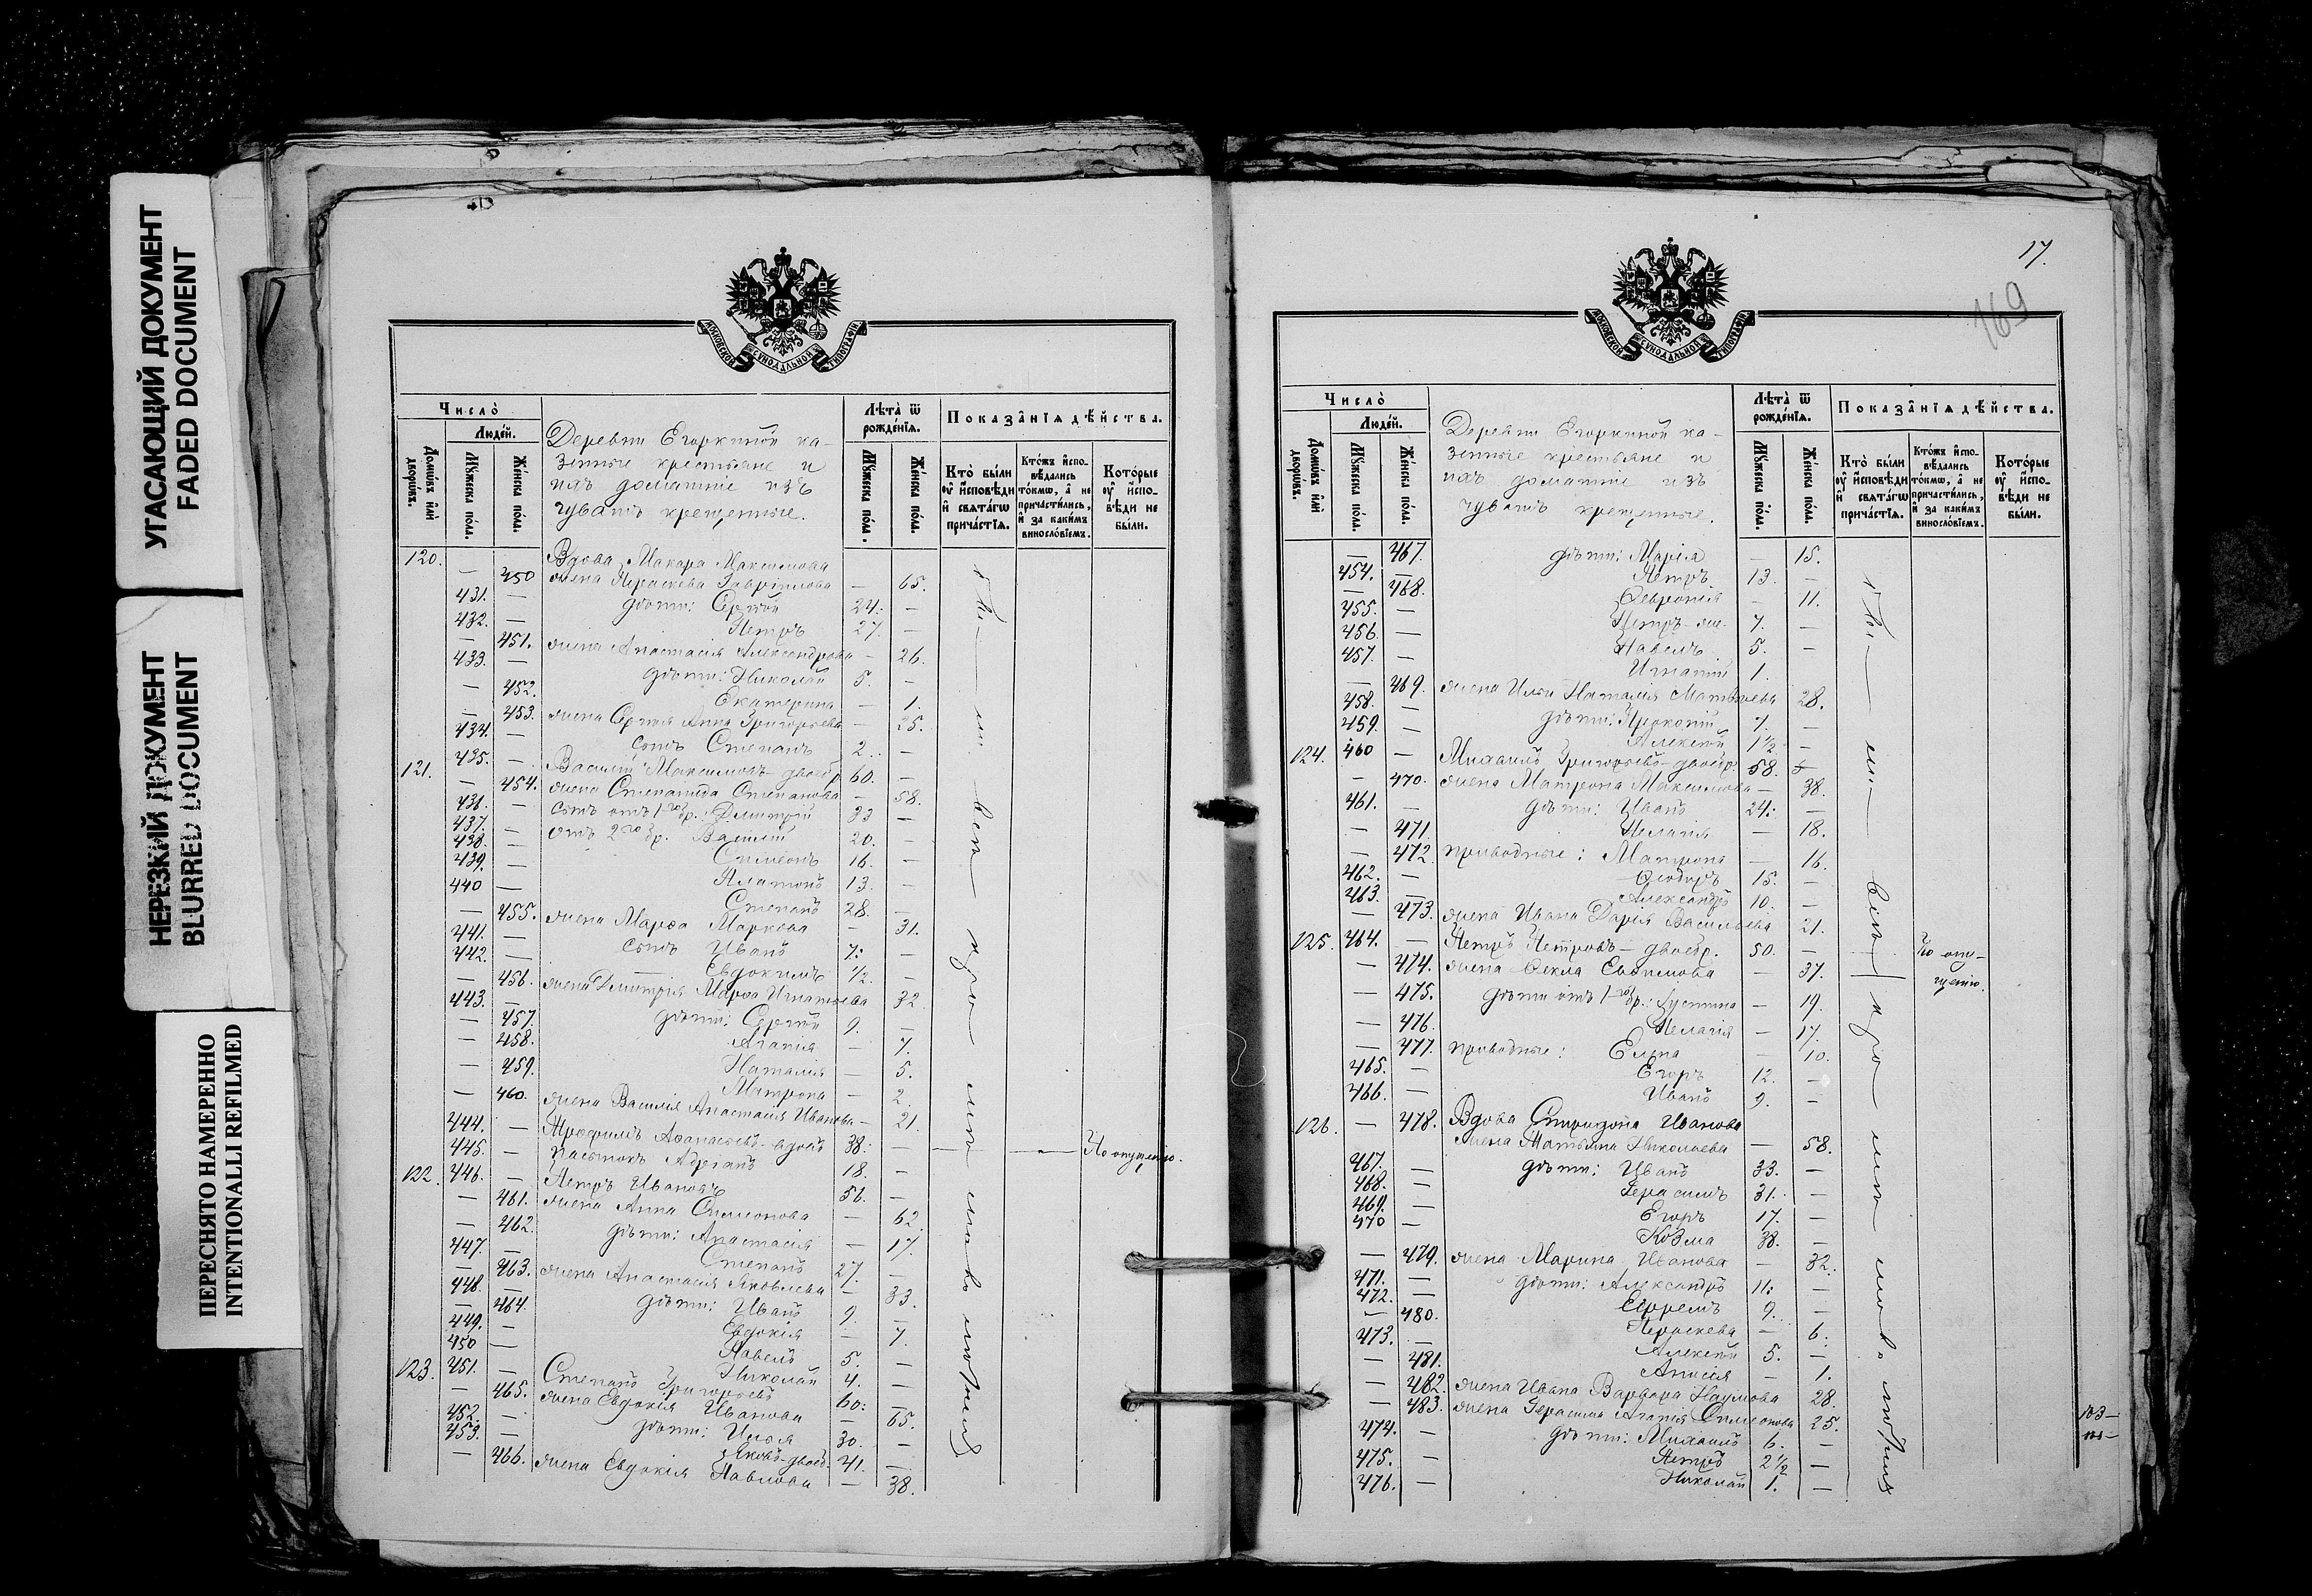 УГАСАЮЩИЙ ДОКУМЕНТ
FADED DOCUMENT
НЕРЕЗКИЙ ДОКУМЕНТ
BLURRED DOCUMENT
ПЕРЕСНЯТО НАМЕРЕННО
INTENTIONALLI REFILMED
МОСКОВСКОЙ СѴНОДАЛЬНОЙ ТИПОГРАФІИ
Число̀
Людéй.
Домѡ́въ и҆лѝ дворѡ́въ.
Мꙋ́жеска по́ла.
Же́нска по́ла.
Деревни Егоркиной ка-
зенные крестьяне и
ихъ домашніе изъ
чувашъ крещенные.
Лѣ́та ѿ рожде́нїѧ.
Мꙋ́жеска по́ла.
Же́нска по́ла.
Показа̂нїѧ дѣ́йства.
Кто̀ бы́ли ᲂу҆ и҆сповѣди и҆ свѧта́гѡ причастїѧ.
Кто́жъ и҆спо-вѣдались то́кмѡ, а҆ не причасти́лись, и҆ за каки́мъ винослόвїемъ.
Кото́рые ᲂу҆ и҆спо-вѣди не бы́ли.
120. Вдова Макара Максимова
— 450 жена Параскева Гавриилова — 65.
431. — дѣти: Сергѣй 24. —
432. — Петръ 27. —
— 451. жена Анастасія Александрова — 26.
433. — дѣти: Николай 5. —
— 452. Екатерина — 1.
— 453. жена Сергѣя Анна Григорьева — 25.
434. — сынъ Степанъ 2. —
121. 435. — Василій Максимовъ двоебр. 60. —
— 454. жена Степанида Степанова — 58.
436. — сынъ отъ 1го бр.: Димитрій 33 —
437. — отъ 2го бр. Василій 20. —
438. — Симеонъ 16. —
439. — Платонъ 13. —
440 — Степанъ 28. —
— 455. жена Марѳа Маркова — 31.
441. — сынъ Иванъ 7. —
442. — Евдокимъ ½. —
— 456. жена Димитрія Марѳа Игнатьева 32
443. — дѣти: Сергѣй 9. —
— 457. Агапія — 7.
— 458. Наталія — 5.
— 459. Матрона — 2.
— 460. жена Василія Анастасія Иванова — 21.
444. — Трофимъ Аѳанасьевъ вдовъ 38. — — — По опущенію.
445. — пасынокъ Адріанъ 18. —
122. 446. — Петръ Ивановъ 56. —
— 461. жена Анна Симеонова — 62
— 462. дѣти: Анастасія — 17.
447. — Степанъ 27. —
— 463. жена Анастасія Яковлева — 33.
448. — дѣти: Иванъ 9. —
— 464. Евдокія — 7.
449. — Павелъ 5. —
450 — Николай 4. —
123. 451. — Степанъ Григорьевъ 60. —
— 465. жена Евдокія Иванова — 65.
452. — дѣти: Илья 30. —
453. — Яковъ двоебр. 41. —
— 466. жена Евдокія Павлова — 38.
17.
169
МОСКОВСКОЙ СѴНОДАЛЬНОЙ ТИПОГРАФІИ
Число̀
Людéй.
Домѡ́въ и҆лѝ дворѡ́въ.
Мꙋ́жеска по́ла.
Же́нска по́ла.
Деревни Егоркиной ка-
зенные крестьяне и
ихъ домашніе изъ
чувашъ крещенные.
Лѣ́та ѿ рожде́нїѧ.
Мꙋ́жеска по́ла.
Же́нска по́ла.
Показа̂нїѧ дѣ́йства.
Кто̀ бы́ли ᲂу҆ и҆сповѣди и҆ свѧта́гѡ причастїѧ.
Кто́жъ и҆спо-вѣдались то́кмѡ, а҆ не причасти́лись, и҆ за каки́мъ винослόвїемъ.
Кото́рые ᲂу҆ и҆спо-вѣди не бы́ли.
— 467. дѣти: Марія — 15.
454. — Петръ 13. —
— 468. Февронія — 11.
455. — Петръ 7. —
456. — Павелъ 5. —
457. — Игнатій 1.
— 469. жена Ильи Наталія Матвѣева 28.
458. — дѣти: Прокопій 7. —
459. — Алексѣй 1½ —
124. 460 — Михаилъ Григорьевъ двоебр. 58.
— 470. жена Матрона Максимова — 38.
461. — дѣти: Иванъ 24. —
— 471. Пелагія — 18.
— 472. приводные: Матрона — 16.
462. — Ѳеодоръ 15. —
463. — Александръ 10. —
— 473. жена Ивана Дарія Васильева 21.
125. 464. — Петръ Петровъ двоебр. 50. — По опу-
щенію.
— 474. жена Ѳекла Евѳимова — 37.
— 475. дѣти отъ 1го бр.: Іустина — 19.
— 476. Пелагія — 17.
— 477. приводные: Елена — 10.
465. — Егоръ 12. —
466. — Иванъ 9. —
126. — 478. Вдова Спиридона Иванова
жена Татьяна Николаева — 58.
467. — дѣти: Иванъ 33. —
468. — Герасимъ 31. —
469. — Егоръ 17. —
470 — Козма 38. —
— 479. жена Марина Иванова — 32.
471. — дѣти: Александръ 11. —
472. — Ефремъ 9. —
— 480. Параскева — 6.
473. — Алексѣй 5. —
— 481. Анисія — 1.
— 482. жена Ивана Варвара Наумова 28.
— 483. жена Герасима Агапія Симеонова 25.
474. — дѣти: Михаилъ 6. —
475. — Петръ 2½ —
476. — Николай 1. —